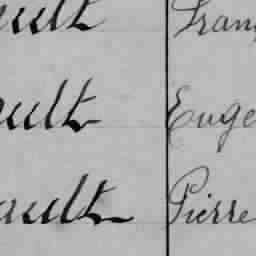 ault Franç
ault Euge
ault Pierre